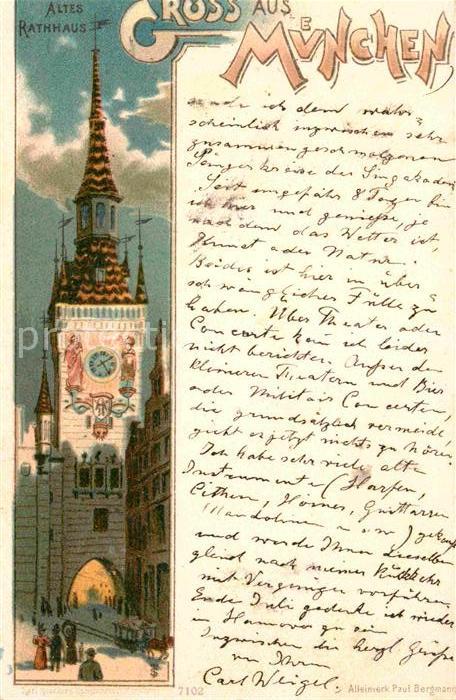 ALTES
RATHHAUS
GRUSS AUS
MÜNCHEN
ich dem wahr-
scheinlich inzwischen sehr
zusammengeschmolzenen
Sängerkreise der Singakademie
Seit ungefähr 8 Tagen bin
ich hier und genieße, je
nachdem das Wetter ist,
Kunst oder Natur.
Beides ist hier in über-
schwänglicher Fülle zu
haben. Über Theater oder
Concerte kann ich leider
nicht berichten. Außer den
kleineren Theatern und Bier
oder Militair Concerten,
die grundsätzlich vermeide,
giebt es jetzt nichts zu hören.
Ich habe sehr viele alte
Instrumente (Harfen,
Cithern, Hörner, Guitarren
Mandolinen u. s. w.)
und werde Ihnen dieselben
gleich nach meiner Rückkehr
mit Vergnügen vorführen.
Ende Juli gedenke ich wieder
in Hannover zu sein
Inzwischen die herzl. Grüße
von Ihrem
Carl Weigel.
7102
Alleinwerk Paul Bergmann